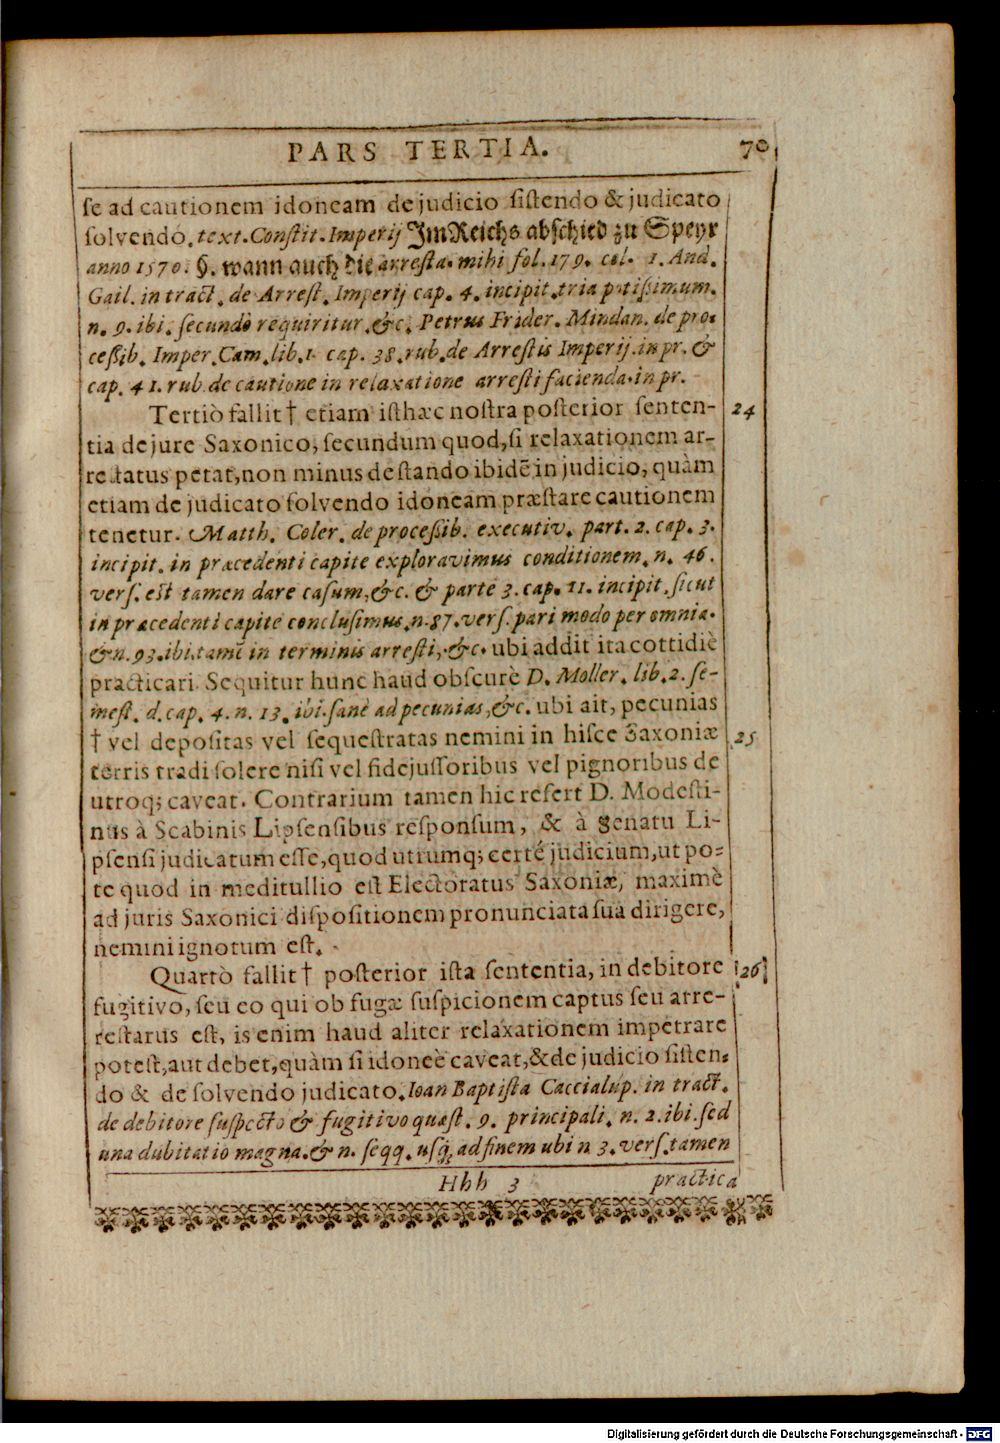 PARS TERTIA. 70
se ad cautionem idoneam de judicio sistendo & judicato
solvendo. text. Constit. Imperij Im Reichs abschied zu Speyr
anno 1570. §. wann auch die arresta. mihi fol. 179. col. 1. And.
Gail. in tract. de Arrest. Imperij cap. 4. incipit. tria potissimum.
n. 9. ibi. secundò requiritur. &c. Petrus Frider. Mindan. de pro-
cessib. Imper. Cam. lib. 1. cap. 38. rub. de Arrestis Imperij. in pr. &
cap. 41. rub. de cautione in relaxatione arresti facienda. in pr.
Tertiò fallit † etiam isthæc nostra posterior senten- 24
tia de jure Saxonico, secundum quod, si relaxationem ar-
restatus petat, non minus de stando ibidē in judicio, quàm
etiam de judicato solvendo idoneam præstare cautionem
tenetur. Matth. Coler. de processib. executiv. part. 2. cap. 3.
incipit. in præcedenti capite exploravimus conditionem. n. 46.
vers. est tamen dare casum, &c. & parte 3. cap. 11. incipit. sicut
in præcedenti capite conclusimus. n. 87. vers. pari modo per omnia.
& n. 93. ibi. tamē in terminis arresti, &c. ubi addit ita cottidiè
practicari. Sequitur hunc haud obscurè D. Moller. lib. 2. se-
mest. d. cap. 4. n. 13. ibi. sanè ad pecunias, &c. ubi ait, pecunias
† vel depositas vel sequestratas nemini in hisce Saxoniæ 25
terris tradi solere nisi vel fidejussoribus vel pignoribus de
utroq; caveat. Contrarium tamen hic refert D. Modesti-
nus à Scabinis Lipsensibus responsum, & à Senatu Li-
psensi judicatum esse, quod utrumq; certé judicium, ut po-
te quod in meditullio est Electoratus Saxoniæ, maximè
ad juris Saxonici dispositionem pronunciata sua dirigere,
nemini ignotum est.
Quartò fallit † posterior ista sententia, in debitore 26
fugitivo, seu eo qui ob fugæ suspicionem captus seu arre-
restatus est, is enim haud aliter relaxationem impetrare
potest, aut debet, quàm si idoneè caveat, & de judicio sisten-
do & de solvendo judicato. Ioan Baptista Caccialup. in tract.
de debitore suspecto & fugitivo quæst. 9. principali. n. 2. ibi. sed
una dubitatio magna. & n. seqq. usq; ad finem ubi n 3. vers. tamen
Hhh 3 practica
Digitalisierung gefördert durch die Deutsche Forschungsgemeinschaft - DFG